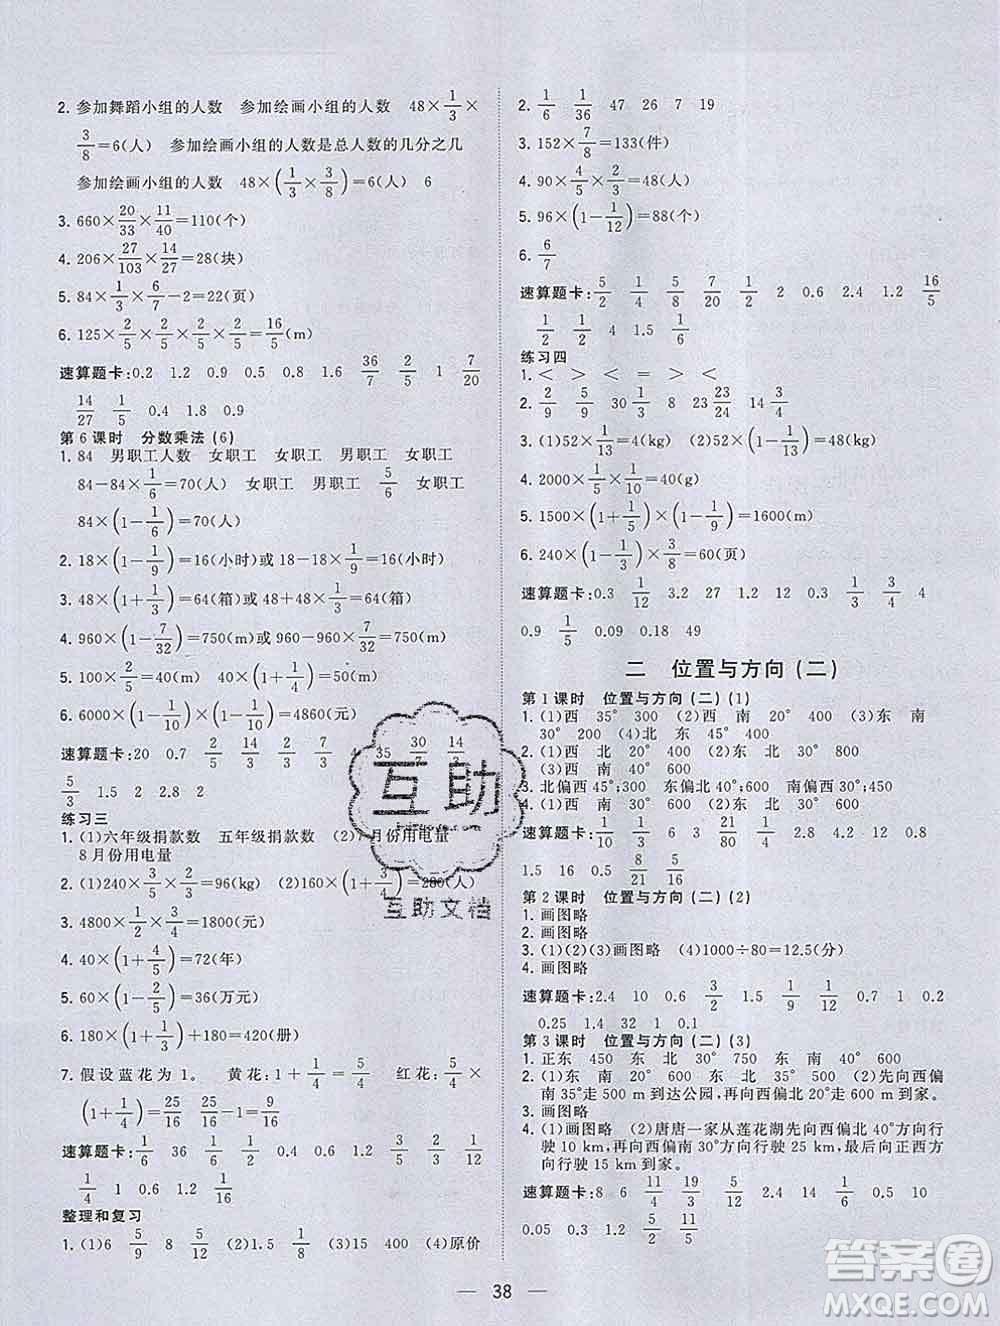 2. 参加舞蹈小组的人数 参加绘画小组的人数 48×1/3×
3/8=6(人) 参加绘画小组的人数是总人数的几分之几
参加绘画小组的人数 48×(1/3×3/8)=6(人) 6
3. 660×20/33×11/40=110(个)
4. 206×27/103×14/27=28(块)
5. 84×1/3×6/7-2=22(页)
6. 125×2/5×2/5×2/5×2/5=16/5(m)
速算题卡:0.2 1.2 0.9 0.5 0.6 36/7 2/5 1 7/20
14/27 1/5 0.4 1.8 0.9
第6课时 分数乘法(6)
1. 84 男职工人数 女职工 女职工 男职工 女职工
84-84×1/6=70(人) 女职工 男职工 5/6 女职工
84×(1-1/6)=70(人)
2. 18×(1-1/9)=16(小时)或18-18×1/9=16(小时)
3. 48×(1+1/3)=64(箱)或48+48×1/3=64(箱)
4. 960×(1-7/32)=750(m)或960-960×7/32=750(m)
5. 100×2/5=40(m) 40×(1+1/4)=50(m)
6. 6000×(1-1/10)×(1-1/10)=4860(元)
速算题卡:20 0.7 2/3 2/9 2/3 4 35 30/7 14/3
5/3 1.5 2 2.8 2
练习三
1. (1)六年级捐款数 五年级捐款数 (2)7月份用电量
8月份用电量
2. (1)240×2/5=96(kg) (2)160×(1+3/4)=280(人)
3. 4800×1/2×3/4=1800(元)
4. 40×(1+4/5)=72(年)
5. 60×(1-2/5)=36(万元)
6. 180×(1+1/3)+180=420(册)
7. 假设蓝花为1。 黄花:1+1/4=5/4 红花:5/4
×(1+1/4)=25/16 25/16-1=9/16
速算题卡:1/6 36 1/6 1/2 6 3/10 2/3 1/4 4/9
1/4 1 0.6 1.2 1/16
整理和复习
1. (1)6 5/9 8 5/12 (2)1.5 1/8 (3)15 400 (4)原价
2. 1/6 1/36 47 26 7 19
3. 152×7/8=133(件)
4. 90×4/5×2/3=48(人)
5. 96×(1-1/12)=88(个)
6. 6/7
速算题卡:5/2 1/4 5/8 7/20 1/2 2 0.6 2.4 1.2 16/5
1/2 1/2 4 1.5 1/6
练习四
1. < > < = > <
2. 2/9 5/9 30 1/4 8 23 23/24 14 3/4
3. (1)52×1/13=4(kg) (2)52×(1-1/13)=48(kg)
4. 2000×1/5×1/10=40(g)
5. 1500×(1+1/5)×(1-1/9)=1600(m)
6. 240×(1-1/3)×3/8=60(页)
速算题卡:0.3 1/12 3.2 3/10 1.2 3/8 1/3 3/4 4
0.9 1/5 0.09 0.18 49
二 位置与方向(二)
第1课时 位置与方向(二)(1)
1. (1)西 35° 300 (2)西 南 20° 200 (3)东 南
30° 200 (4)北 东 45° 400
2. (1)西 北 20° 400 (2)东 北 30° 800
(3)西 南 40° 600
3. 北偏西45°;300 东偏北40°;600 南偏西30°;450
4. (1)东 北 60° 400 (2)西 北 70° 600
速算题卡:1/10 1/3 1/6 6 3 21/80 1/4 1.2 1.2
1.5 16 0.5 8/21 5/16
第2课时 位置与方向(二)(2)
1. 画图略
2. 画图略
3. (1)(2)(3)画图略 (4)1000÷80=12.5(分)
4. 画图略
速算题卡:2.4 10 0.6 3/2 1.5 1/9 1/2 1 0.2
0.25 1.4 32 1 0.1
第3课时 位置与方向(二)(3)
1. 正东 450 东 北 30° 750 东 南 40° 600
2. (1)东 南 20° 500 东 北 40° 600 (2)先向西偏
南35°走500 m到达公园,再向西偏北20°走600 m到家。
3. 画图略
4. (1)画图略 (2)唐唐一家从莲花湖先向西偏北40°方向行
驶10 km,再向西偏南30°方向行驶25 km,最后向正西方
向行驶15 km到家。
速算题卡:8 6 11/4 19/3 5/12 2.4 14 1/9 0.5 10
0.05 0.3 1.2 5/2 5/9
38
互助
互助文档
答案圈
MXQE.COM